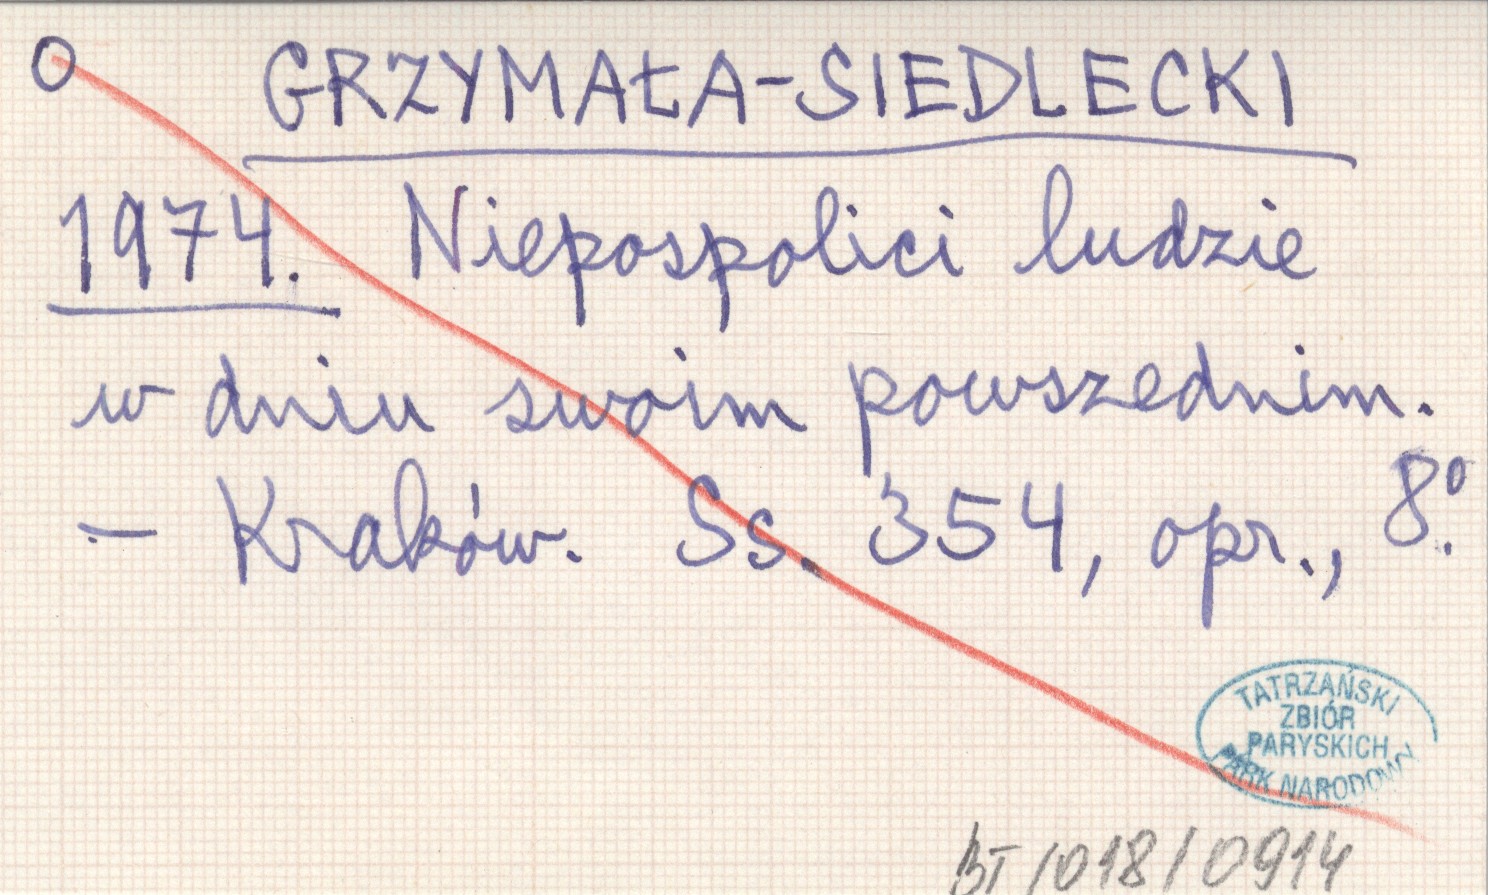 O GRZYMAŁA-SIEDLECKI
1974. Niepospolici ludzie
w dniu swoim powszednim.
- Kraków. Ss. 354, opr., 8º.
TATRZAŃSKI
ZBIÓR
PARYSKICH
PARK NARODOWY
BT/018/0914